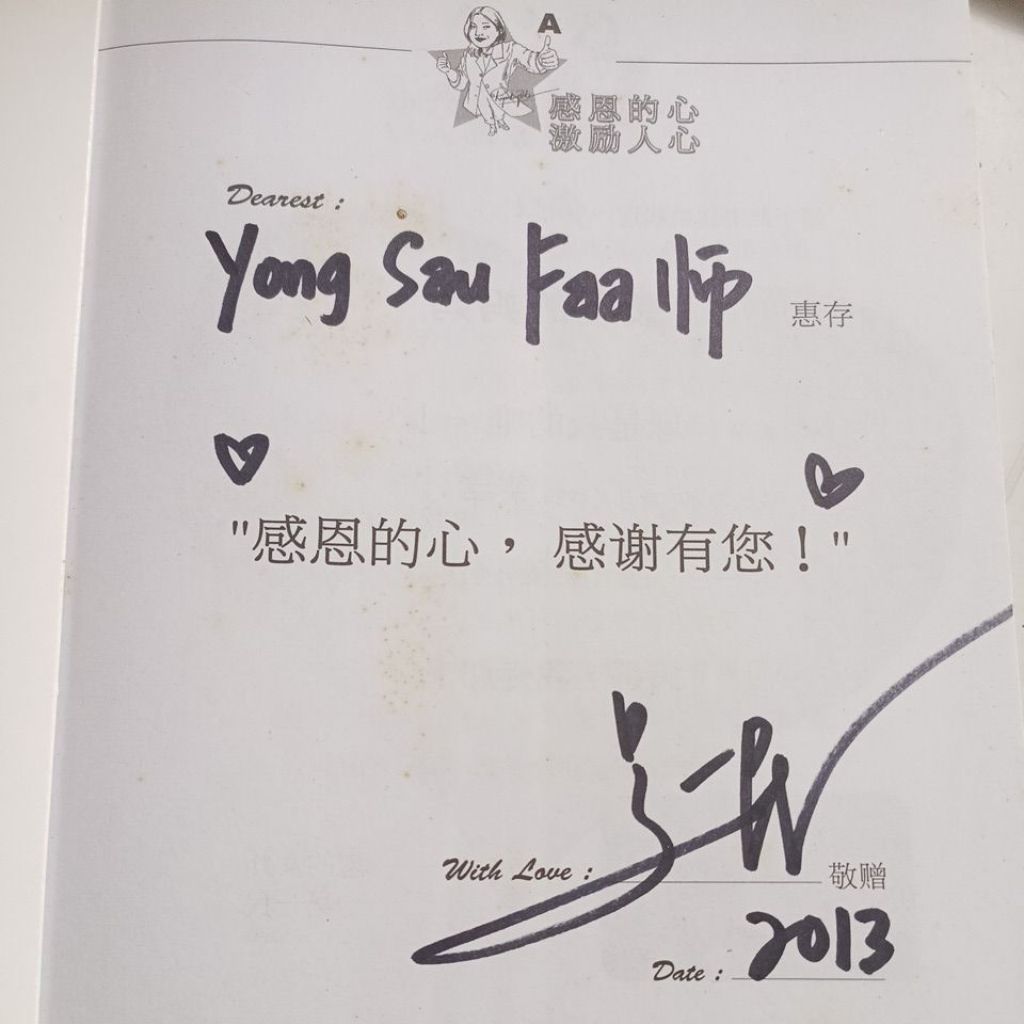 A
感恩的心
激励人心
Dearest :
Yong Sau Faa 师 惠存
"感恩的心， 感谢有您！"
With Love : 敬赠
Date : 2013